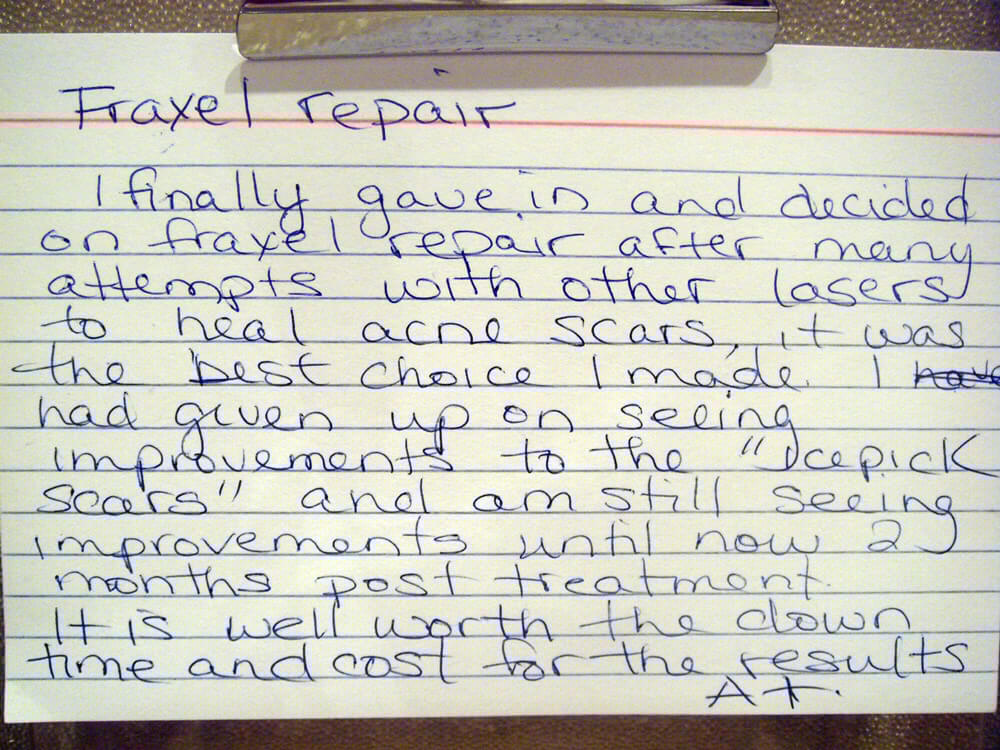 Fraxel repair
I finally gave in and decided
on fraxel repair after many
attempts with other lasers
to heal acne scars, it was
the best choice I made. I have
had given up on seeing
improvements to the "Icepick
scars" and am still seeing
improvements until now 2
months post treatment.
It is well worth the down
time and cost for the results
A.T.